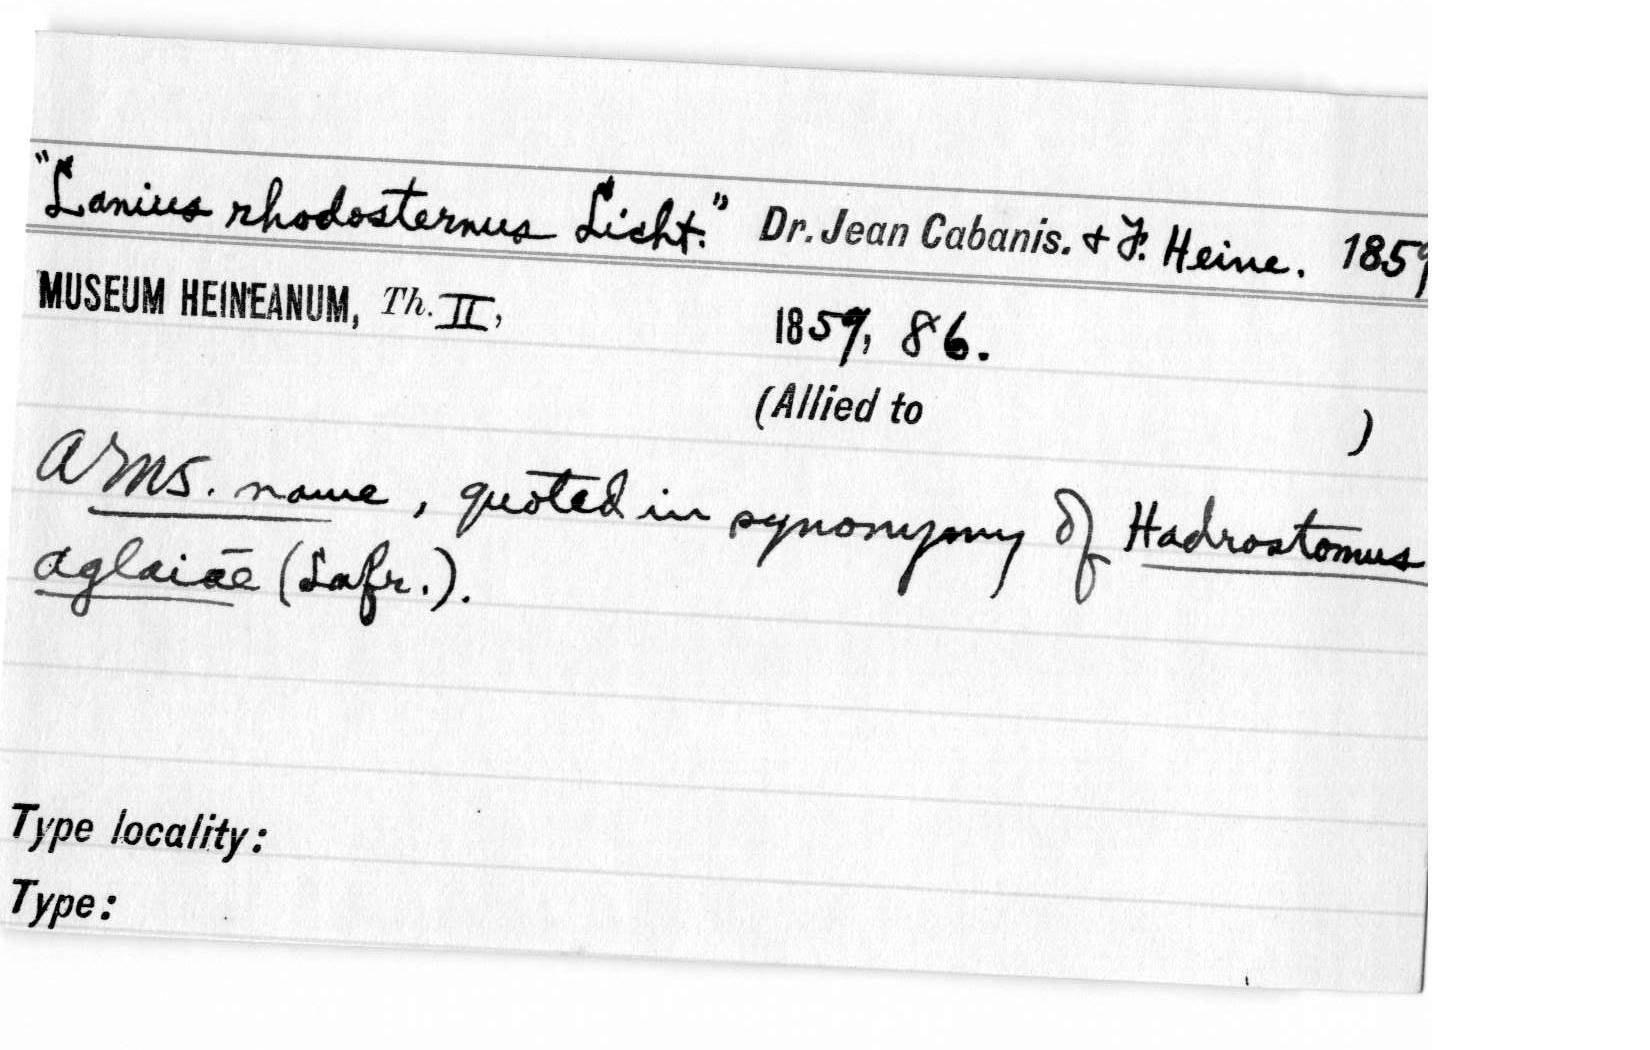 "Lanius rhodosternus Licht." Dr. Jean Cabanis. & F. Heine. 1859
MUSEUM HEINEANUM, Th. II, 1859, 86.
(Allied to )
A MS. name, quoted in synonymy of Hadrostomus
aglaiæ (Lafr.).
Type locality:
Type: